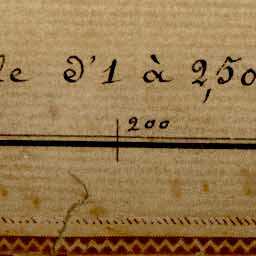 le d'1 à 2,50
200